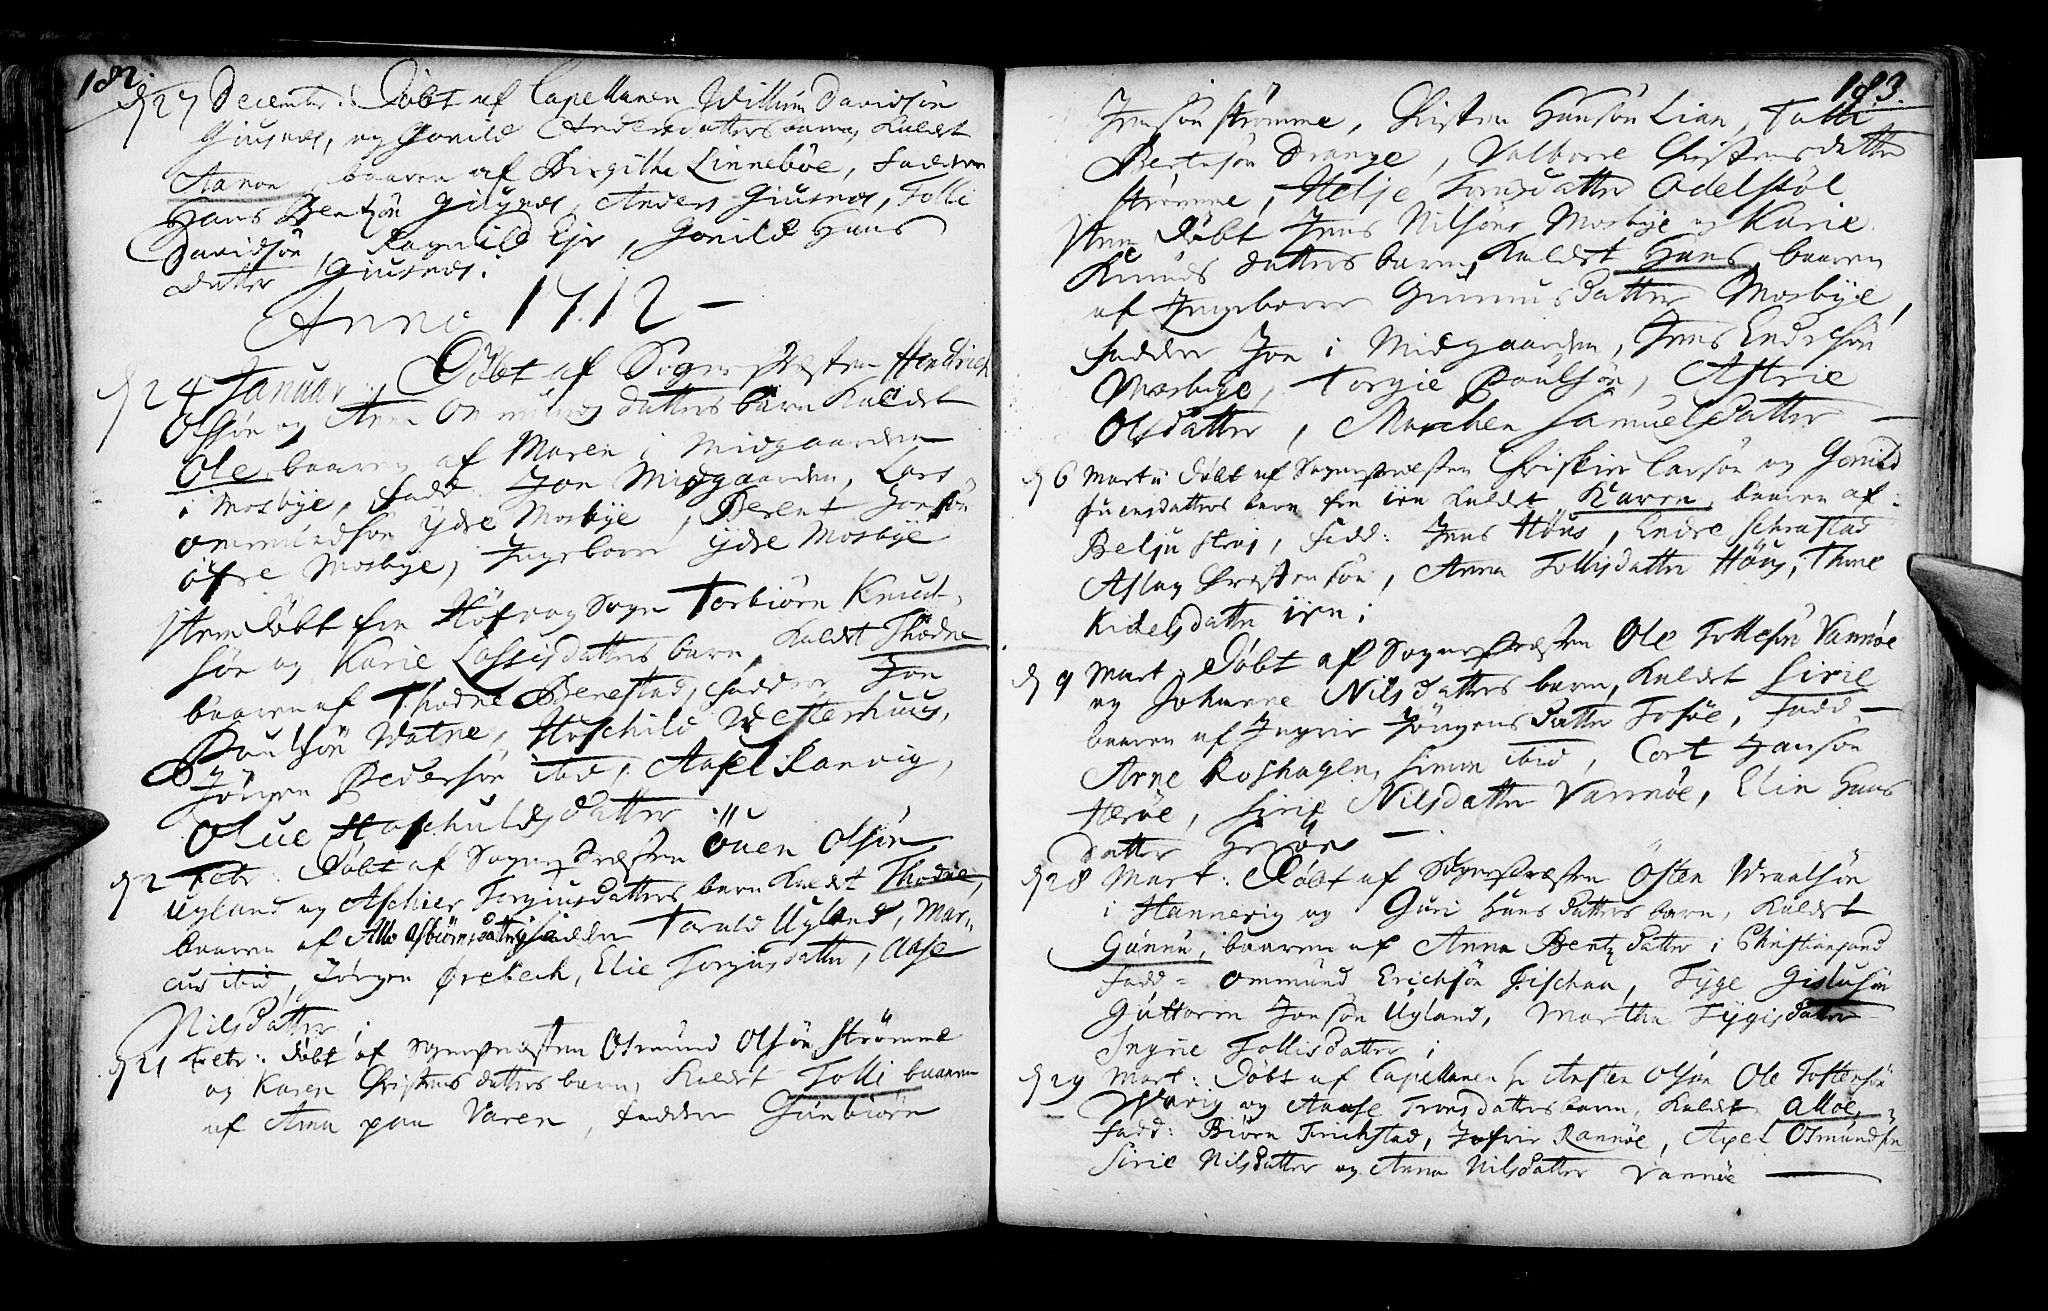 182.
d 27 December: Døbt af Capellanen Willum Davidsøn
Giusnæs, og Gonild Andersdatters barn, Kaldt
Aanon, baaren af Birgithe Linnebøe, Faddere
Hans Bentsøn Giusnæs, Anders Giusnæs, Tolli
Davidsøn, Ragnild Eje, Gonild Hans
datter Giusnæs.
Anno 1712 –
d 24 Januar. Døbt af Sognepræsten Hendrich
Olsøn og Anna Ommunds datters barn Kaldet
Ole, baaren af Maren i Midgaarden
i Mosbye, Fadd. Jon Midgaarden, Lars
Ommundsøn Ydre Mosbye, Berent Jonsøn
øfre Mosbye, Ingebor Ydre Mosbye
Item døbt fra Høfvog Sogn Torbiørn Knud-
søn og Karie Lassisdatters barn, Kaldt Thodne
baaren af Thodne Benestad, Faddere Jon
Poulsøn Watne, Hoschild Westerhuus,
Jørgen Pedersøn ibid, Aasel Ranvig,
Olue Hoschulds datter.
d 2 Febr. Døbt af Sognepræsten Øuen Olsøn
Uyland og Aschier Torgiusdatters barn Kaldt Thodne,
baaren af Allo Asbiørnsdatter, Faddere Torald Uyland, Mar-
cus ibid, Jørgen Ørebech, Elie Torgiusdatter, Aase
Nilsdatter.
d 21 Febr: døbt af Sognepræsten Osmund Olsøn Strømme
og Karen Christens datters barn, Kaldet Tolli baaren
af Anna paa Varen, Faddere Gunbiørn
183.
Jensøn Strømme, Christen Hansøn Lian, Tolli
Berntsøn Drange, Valborre Christensdatter
Strømme, Helje Tomisdatter Odelstøl
Item Døbt Jens Nilsøns Mosbye og Karie
Knuds datters barn, Kaldet Hans, baaren
af Ingeborre Gunnusdatter Mosbye,
Faddere Jon i Midgaarden, Jens Endresøn
Mosbye, Torgie Poulsøn, Astrie
Olsdatter, Marchen Samuelsdatter –
d 6 Martii døbt af Sognepræsten Christen Larsøn og Gonild
Suensdatters barn fra ien Kaldet Karen, baaren af
Belju Straj, Fadd: Jens Høus, Endre Schraastad
Aslag Christensøn, Anna Tollisdatter Høus, Thore
Kidelsdatter iren.
d 9 Mart. Døbt af Sognepræsten Ole Tollefsøn Vannøe
og Johanne Nilsdatters barn, Kaldet Sirie
baaren af Ingrie Jørgensdatter Toføe, Fadd –
Arne Roshagen, Simon ibid, Cort Jansøn
Herøe, Sirie Nilsdatter Vannøe, Elin Hans
datter Herøe –
d 28 Mart: Døbt af Sognepræsten Østen Wraalsøn
i Hannevig og Guri Hans datters barn, Kaldet
Gunnu, baaren af Anna Bentzdatter i Christiansand
Fadd = Ommund Erichsøn Fischaa, Tyge Gislusøn
Guttorm Jonsøn Uyland, Martha Tygisdatter
Ingrie Tollisdatter.
d 29 Mart: Døbt af Capellanen hr Austen Olsøn Ole Tostensøn
Wrig og Aaase Tronsdatters barn, Kaldet Alloe,
Fadd: Biørn Trichstad, Jofrir Rannøe, Axel Osmundsøn
Sirie Nilsdatter og Anna Nilsdatter Vannøe –